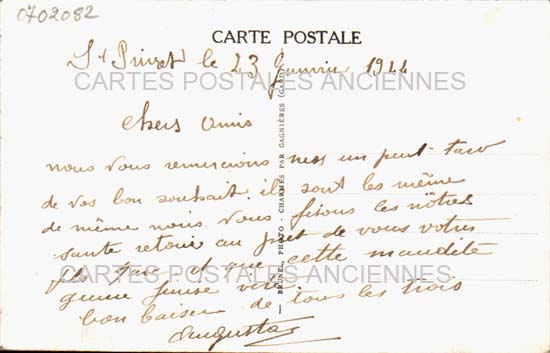 0702082
CARTE POSTALE
St Privat le 23 Janvier 1944
CARTES POSTALES ANCIENNES
Chers Amis
nous vous remercions un peut tard
de vos bon souhait. ils sont les même
de même nous vous fesons les nôtres
sante retour au de vous votres
fils et que cette maudite
CARTES POSTALES ANCIENNES
guerre finise vite
bon baiser de tous les trois
Augusta
BRUNEL, PHOTO - CHARMES PAR GAGNIÈRES (GARD)